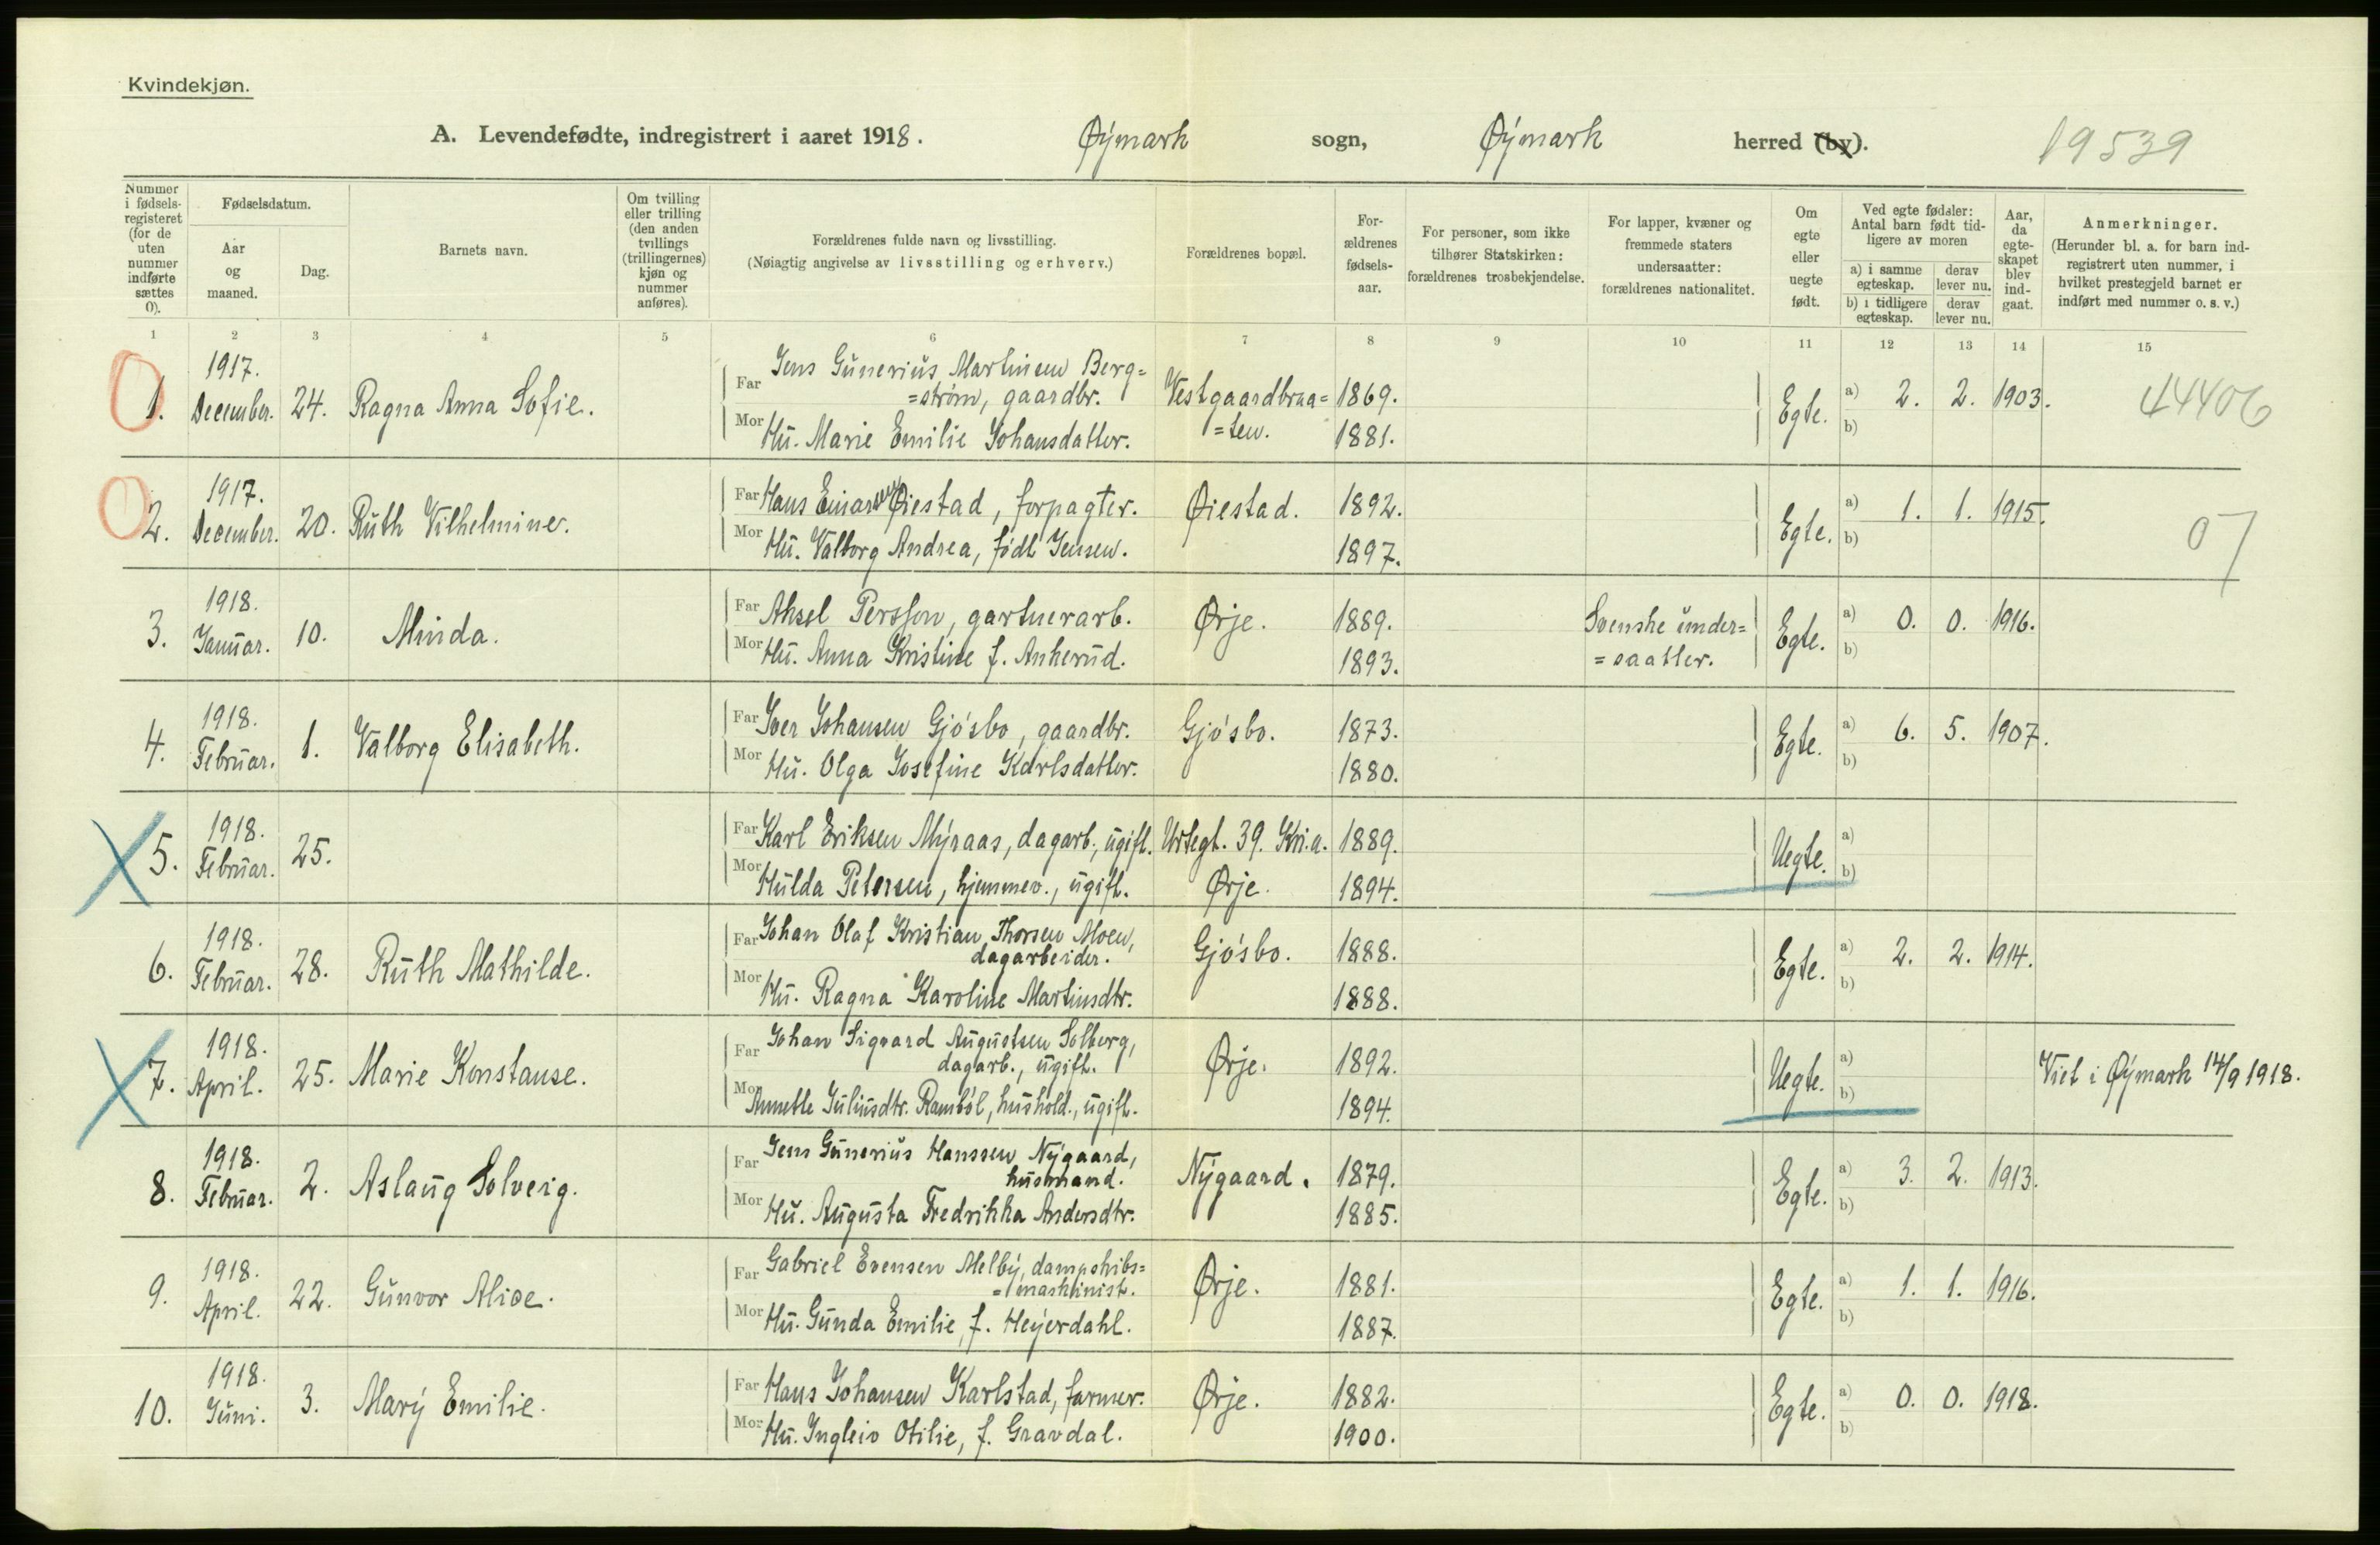 Kvindekjøn.
A. Levendefødte, indregistrert i aaret 1918. Øymark sogn, Øymark herred (by). 19539
Nummer i fødsels-registeret (for de uten nummer indførte sættes 0).
Fødselsdatum.
Aar og maaned.
Dag.
Barnets navn.
Om tvilling eller trilling (den anden tvillings (trillingernes) kjøn og nummer anføres).
Forældrenes fulde navn og livsstilling.
(Nøiagtig angivelse av livsstilling og erhverv.)
Forældrenes bopæl.
For-ældrenes fødsels-aar.
For personer, som ikke tilhører Statskirken: forældrenes trosbekjendelse.
For lapper, kvæner og fremmede staters undersaatter: forældrenes nationalitet.
Om egte eller uegte født.
Ved egte fødsler: Antal barn født tid-ligere av moren
a) i samme egteskap. derav lever nu.
b) i tidligere egteskap. derav lever nu.
Aar, da egte-skapet blev ind-gaat.
Anmerkninger.
(Herunder bl. a. for barn ind-registrert uten nummer, i hvilket prestegjeld barnet er indført med nummer o. s. v.)
1 2 3 4 5 6 7 8 9 10 11 12 13 14 15
1. 1917. December. 24. Ragna Anna Sofie.
Far Jens Gunerius Martinsen Berg=
=strøm, gaardbr. Vestgaardbraa= 1869. Egte. a) 2. 2. 1903. 44406
Mor Hu. Marie Emilie Johansdatter. =ten. 1881. b)
2. 1917. December. 20. Ruth Vilhelmine.
Far Hans Einarsen Øiestad, forpagter. Øiestad. 1892. Egte. a) 1. 1. 1915. 07
Mor Hu. Valborg Andrea, født Jensen. 1897. b)
3. 1918. Januar. 10. Minda.
Far Aksel Persson, gartnerarb. Ørje. 1889. Svenske under= Egte. a) 0. 0. 1916.
Mor Hu. Anna Kristine f. Ankerud. 1893. =saatter. b)
4. 1918. Februar. 1. Valborg Elisabeth.
Far Iver Johansen Gjøsbo, gaardbr. Gjøsbo. 1873. Egte. a) 6. 5. 1907.
Mor Hu. Olga Josefine Karlsdatter. 1880. b)
5. 1918. Februar. 25.
Far Karl Eriksen Myraas, dagarb., ugift. Urtegt. 39. Kri.a. 1889. Uegte. a)
Mor Hulda Petersen, hjemmev., ugift. Ørje. 1894. b)
6. 1918. Februar. 28. Ruth Mathilde.
Far Johan Olaf Kristian Thorsen Moen,
dagarbeider. Gjøsbo. 1888. Egte. a) 2. 2. 1914.
Mor Hu. Ragna Karoline Martinsdtr. 1888. b)
7. 1918. April. 25. Marie Konstanse.
Far Johan Sigvard Augustsen Solberg,
dagarb., ugift. Ørje. 1892. Uegte. a) Viet i Øymark 14/9 1918.
Mor Annette Juliusdtr. Rambøl, hushold., ugift. 1894. b)
8. 1918. Februar. 2. Aslaug Solveig.
Far Jens Gunerius Hanssen Nygaard,
husmand. Nygaard. 1879. Egte. a) 3. 2. 1913.
Mor Hu. Augusta Fredrikka Andersdtr. 1885. b)
9. 1918. April. 22. Gunvor Alice.
Far Gabriel Evensen Melby, dampskibs=
=maskinist. Ørje. 1881. Egte. a) 1. 1. 1916.
Mor Hu. Gunda Emilie, f. Heyerdahl. 1887. b)
10. 1918. Juni. 3. Mary Emilie.
Far Hans Johansen Karlstad, farmer. Ørje. 1882. Egte. a) 0. 0. 1918.
Mor Hu. Ingleiv Otilie, f. Gravdal. 1900. b)